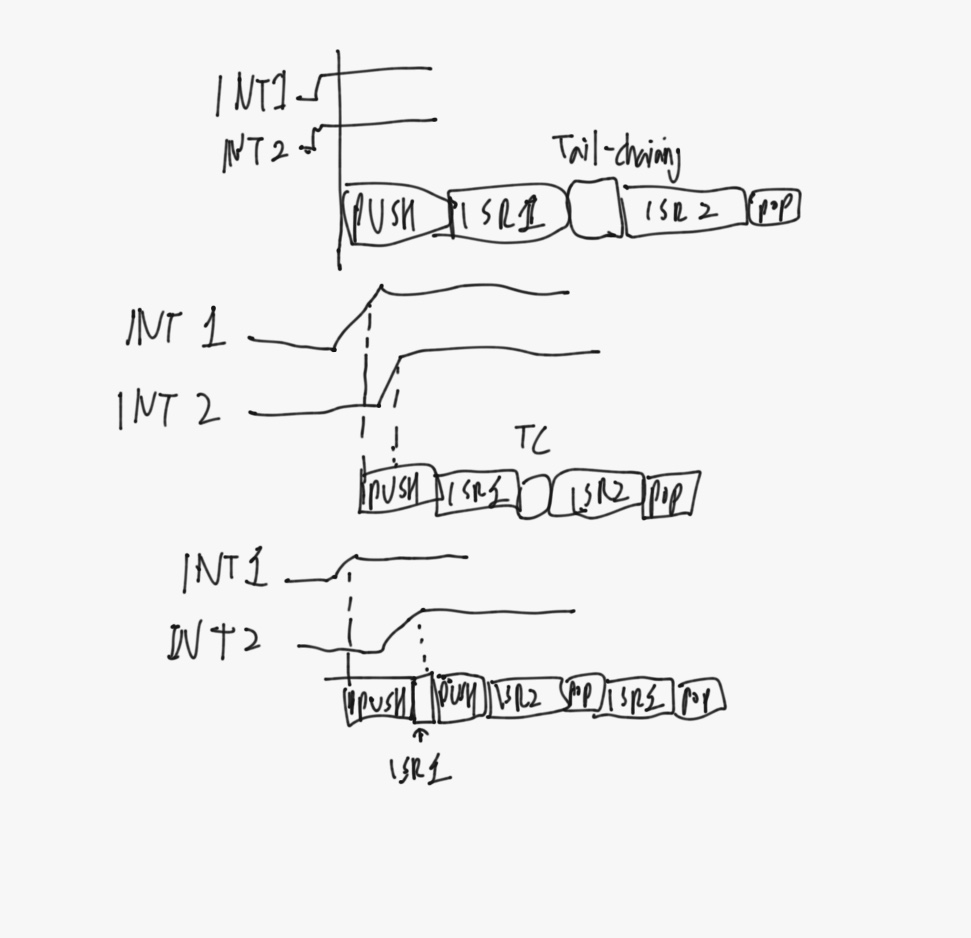 INT1
INT2
Tail-chaining
PUSH ISR1 ISR2 POP
INT 1
INT 2
TC
PUSH ISR1 ISR2 POP
INT1
INT2
PUSH PUSH ISR2 POP ISR1 POP
ISR1